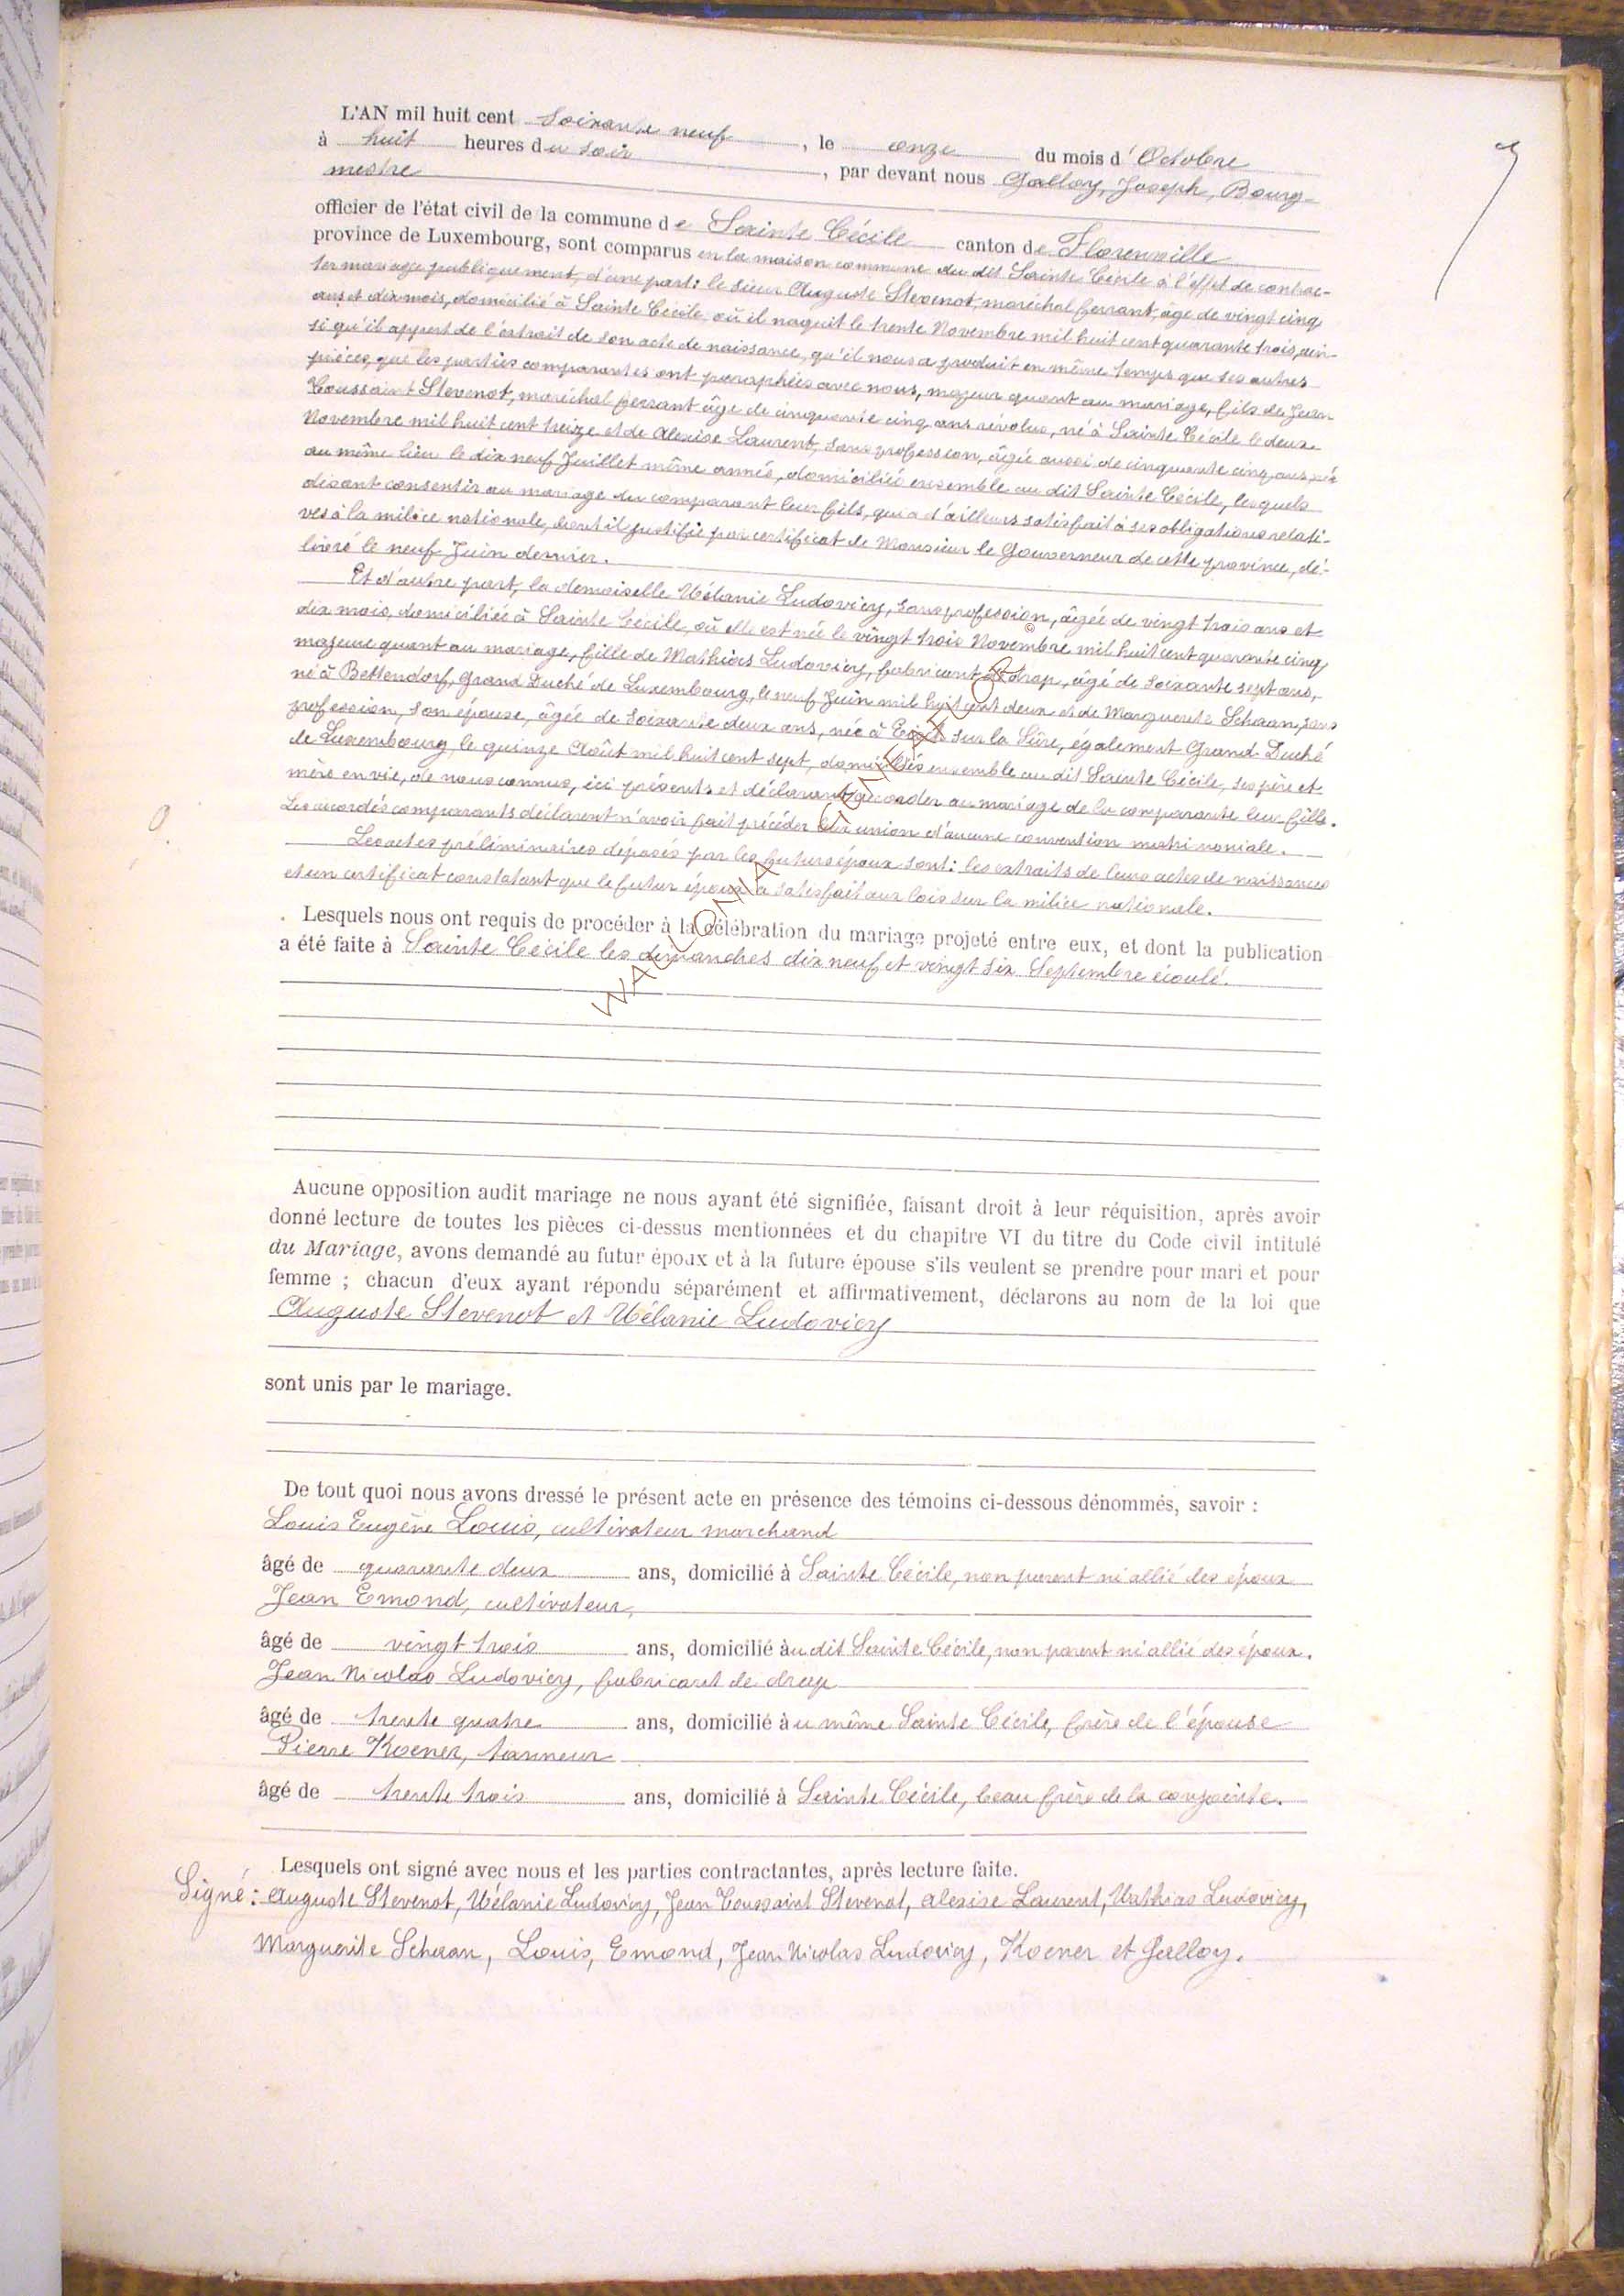 L'AN mil huit cent soixante neuf, le onze du mois d'Octobre
à huit heures du soir, par devant nous Galloy, Joseph, Bourg-
mestre
officier de l'état civil de la commune de Sainte Cécile canton de Florenville
province de Luxembourg, sont comparus en la maison commune du dit Sainte Cécile à l'effet de contrac-
ter mariage publiquement, d'une part: le sieur Auguste Stevenot, maréchal ferrant, âgé de vingt cinq
ans et dix mois, domicilié à Sainte Cécile, où il naquit le trente Novembre mil huit cent quarante trois, ain-
si qu'il appert de l'extrait de son acte de naissance, qu'il nous a produit en même temps que ses autres
pièces, que les parties comparantes ont paraphées avec nous, majeur quant au mariage, fils de Jean
Toussaint Stevenot, maréchal ferrant âgé de cinquante cinq ans révolus, né à Sainte Cécile le deux
Novembre mil huit cent treize et de Alexise Laurent, sans profession, âgée aussi de cinquante cinq ans, née
au même lieu le dix neuf Juillet même année, domiciliés ensemble au dit Sainte Cécile, lesquels
disant consentir au mariage du comparant leur fils, qui a d'ailleurs satisfait à ses obligations relati-
ves à la milice nationale, dont il justifie par certificat de Monsieur le Gouverneur de cette province, dé-
livré le neuf Juin dernier.
Et d'autre part, la demoiselle Mélanie Ludovicy, sans profession, âgée de vingt trois ans et
dix mois, domiciliée à Sainte Cécile, où elle est née le vingt trois Novembre mil huit cent quarante cinq
majeure quant au mariage, fille de Mathias Ludovicy, fabricant de drap, âgé de soixante sept ans,
né à Bettendorf, Grand Duché de Luxembourg, le neuf Juin mil huit cent deux et de Marguerite Schaan, sans
profession, son épouse, âgée de soixante deux ans, née à sur la Sûre, également Grand-Duché
de Luxembourg, le quinze Août mil huit cent sept, domiciliés ensemble au dit Sainte Cécile, ses père et
mère en vie, de nous connus, ici présents et déclarant accorder au mariage de la comparante leur fille.
Les accordés comparants déclarent n'avoir fait précéder leur union d'aucune convention matrimoniale.
Les actes préliminaires déposés par les futurs époux sont: les extraits de leurs actes de naissance
et un certificat constatant que le futur époux a satisfait aux lois sur la milice nationale.
Lesquels nous ont requis de procéder à la célébration du mariage projeté entre eux, et dont la publication
a été faite à Sainte Cécile les dimanches dix neuf et vingt six Septembre écoulé.
Aucune opposition audit mariage ne nous ayant été signifiée, faisant droit à leur réquisition, après avoir
donné lecture de toutes les pièces ci-dessus mentionnées et du chapitre VI du titre du Code civil intitulé
du Mariage, avons demandé au futur époux et à la future épouse s'ils veulent se prendre pour mari et pour
femme ; chacun d'eux ayant répondu séparément et affirmativement, déclarons au nom de la loi que
Auguste Stevenot et Mélanie Ludovicy
sont unis par le mariage.
De tout quoi nous avons dressé le présent acte en présence des témoins ci-dessous dénommés, savoir :
Louis Eugène Louis, cultivateur marchand
âgé de quarante deux ans, domicilié à Sainte Cécile, non parent ni allié des époux
Jean Emond, cultivateur,
âgé de vingt trois ans, domicilié àu dit Sainte Cécile, non parent ni allié des époux.
Jean Nicolas Ludovicy, fabricant de drap
âgé de trente quatre ans, domicilié àu même Sainte Cécile, frère de l'épouse
Pierre Koener, tanneur
âgé de trente trois ans, domicilié à Sainte Cécile, beau frère de la conjointe.
Lesquels ont signé avec nous et les parties contractantes, après lecture faite.
Signé: Auguste Stevenot, Mélanie Ludovicy, Jean Toussaint Stevenot, Alexise Laurent, Mathias Ludovicy,
Marguerite Schaan, Louis, Emond, Jean Nicolas Ludovicy, Koener et Galloy.